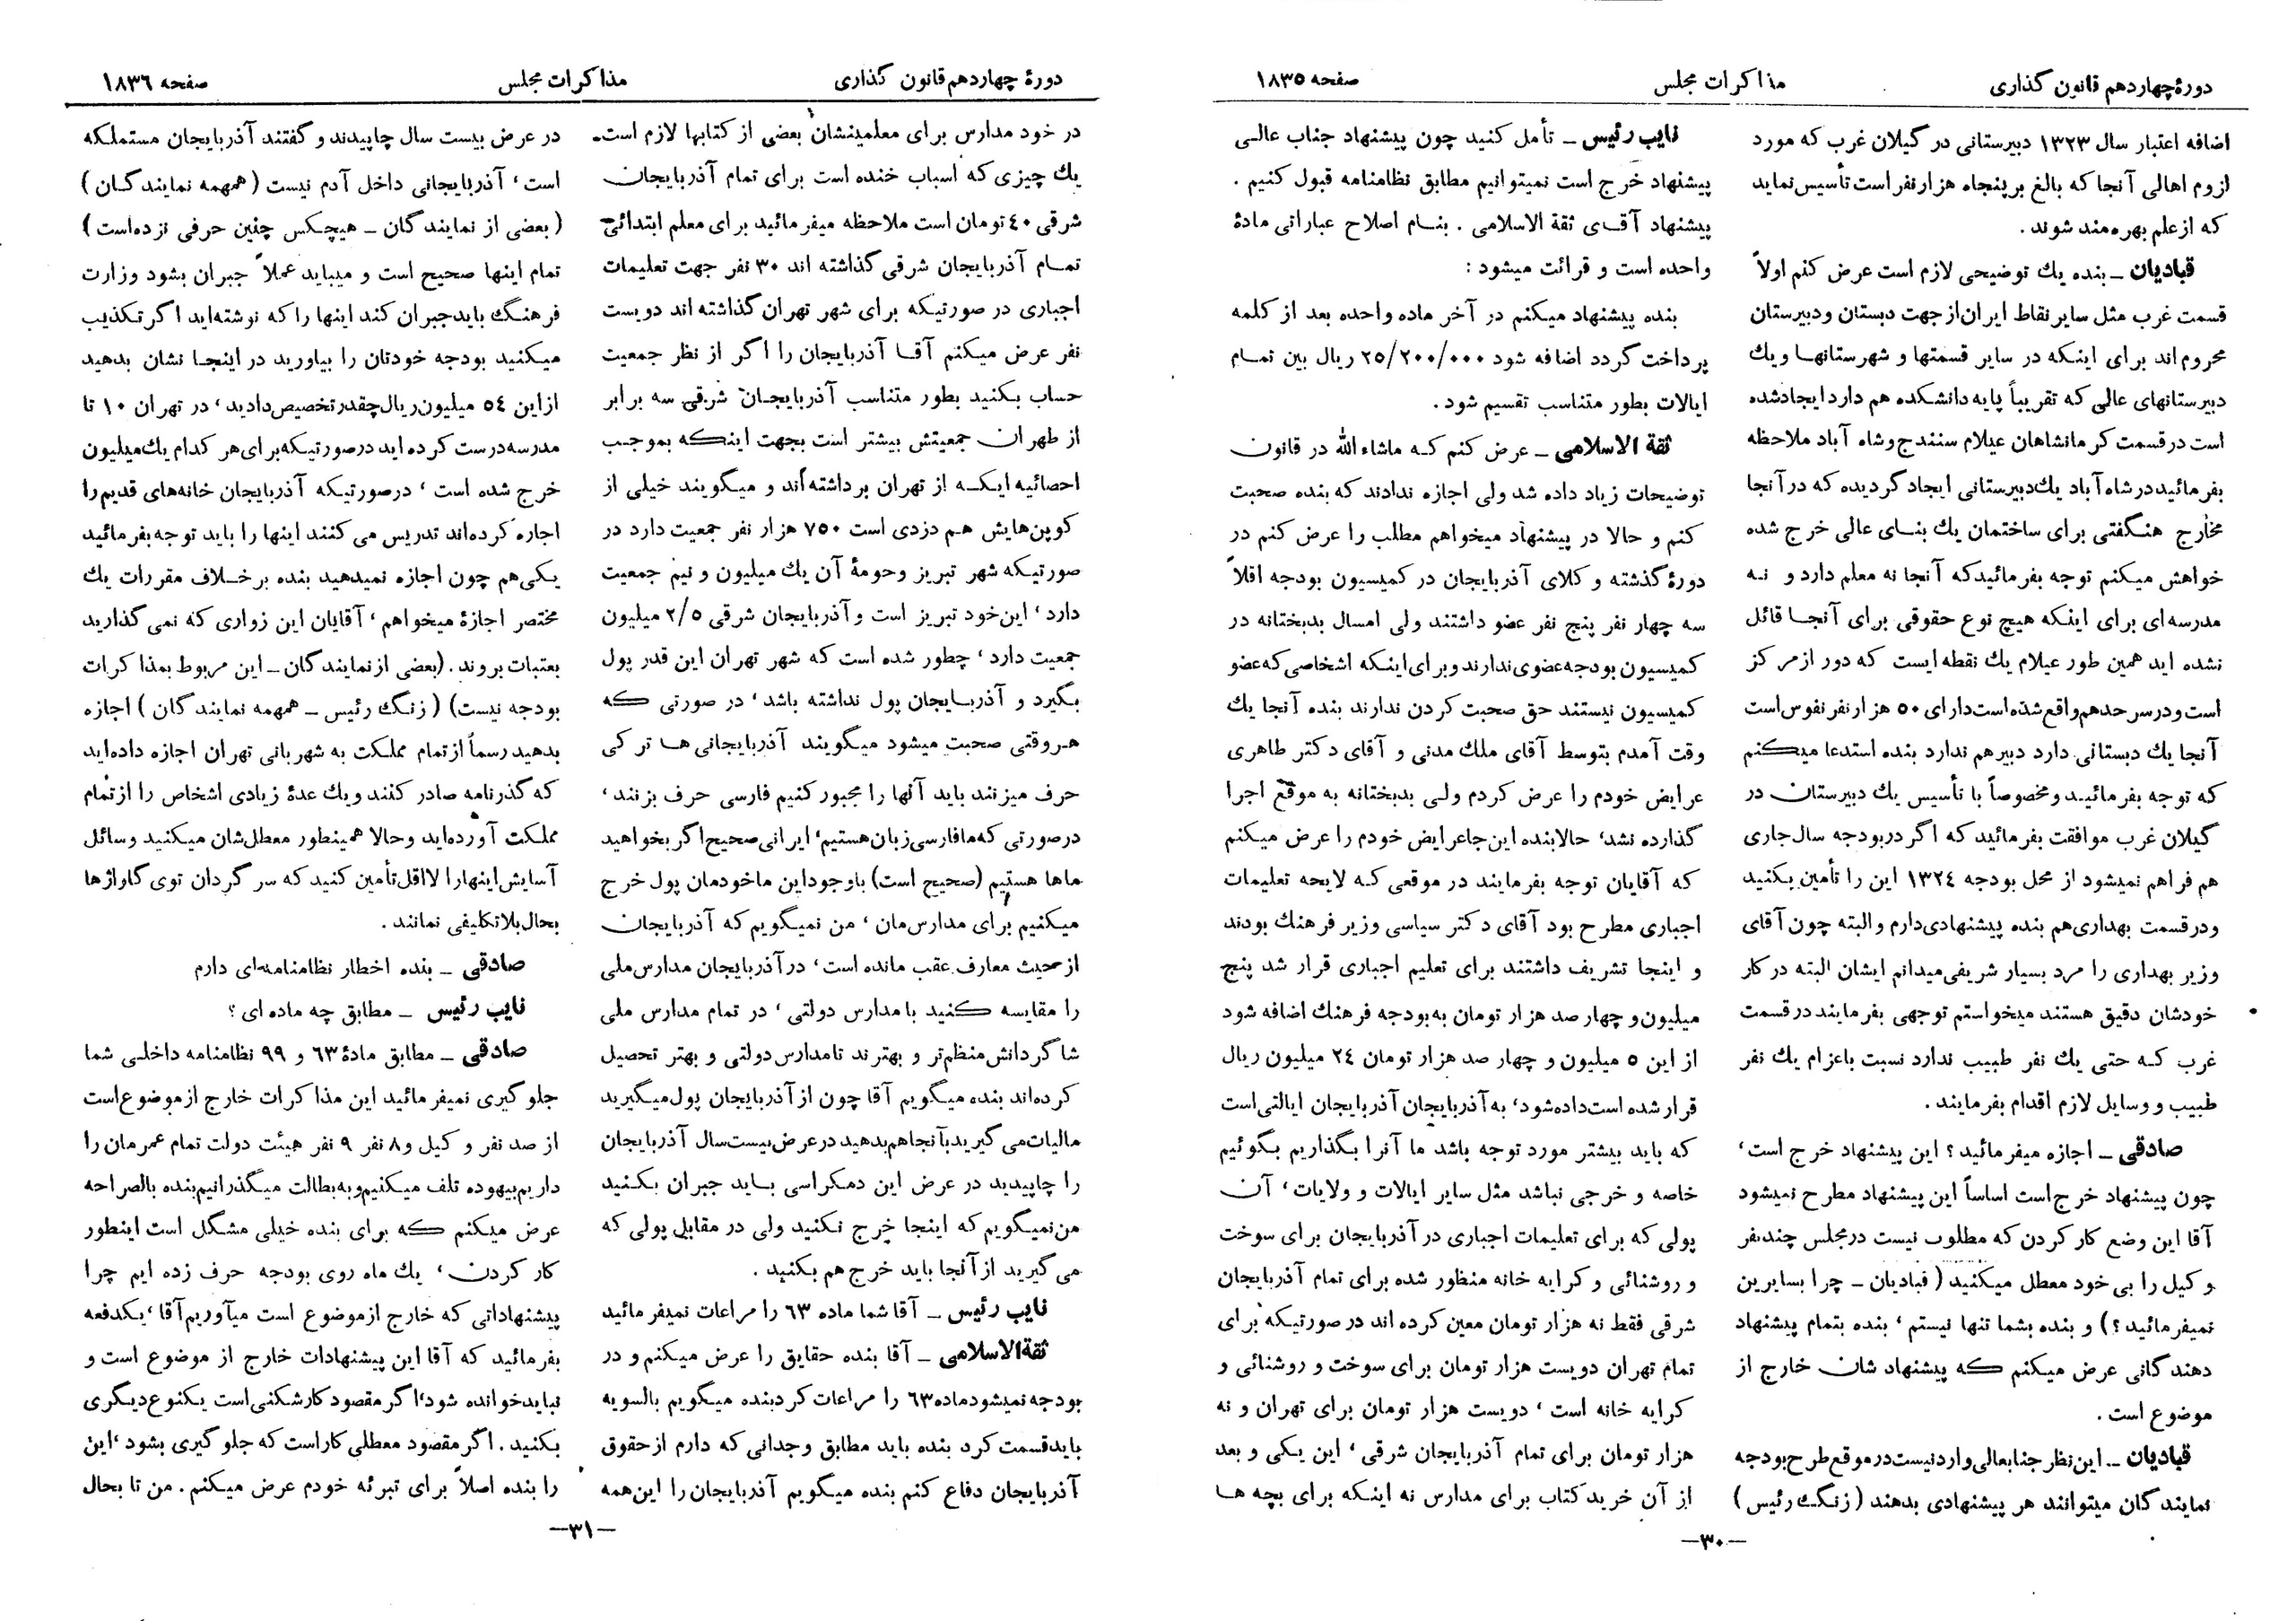 دورهٔ چهاردهم قانون گذاری
مذاکرات مجلس
صفحه ۱۸۳۵
اضافه اعتبار سال ۱۳۲۳ دبیرستانی در گیلان غرب که مورد
لزوم اهالی آنجا که بالغ بر پنجاه هزار نفر است تأسیس نماید
که از علم بهره‌مند شوند .
قبادیان ــ بنده یك توضیحی لازم است عرض کنم اولاً
قسمت غرب مثل سایر نقاط ایران از جهت دبستان و دبیرستان
محروم‌اند برای اینکه در سایر قسمتها و شهرستانهـا و یك
دبیرستانهای عالی که تقریباً پایه دانشکده هم دارد ایجاد شده
است در قسمت کرمانشاهان عیلام سنندج و شاه آباد ملاحظه
بفرمائید در شاه آباد یك دبیرستانی ایجاد گردیده که در آنجا
مخارج هنگفتی برای ساختمان یك بنـای عالی خرج شده
خواهش میکنم توجه بفرمائید که آنجا نه معلم دارد و نـه
مدرسه‌ای برای اینکه هیچ نوع حقوقی برای آنجـا قائل
نشده اید همین طور عیلام یك نقطه ایست که دور از مرکز
است و در سرحد هم واقع شده است دارای ۵۰ هزار نفر نفوس است
آنجا یك دبستانی دارد دبیر هم ندارد بنده استدعا میکنم
که توجه بفرمائیـد و مخصوصاً با تأسیس یك دبیرستان در
گیلان غرب موافقت بفرمائید که اگر در بودجه سال جاری
هم فراهم نمیشود از محل بودجه ۱۳۲٤ این را تأمین بکنید
و در قسمت بهداری هم بنده پیشنهادی دارم و البته چون آقای
وزیر بهداری را مرد بسیار شریفی میدانم ایشان البته در کار
خودشان دقیق هستند میخواستم توجهی بفرمایند در قسمت
غرب کـه حتی یك نفر طبیب ندارد نسبت باعزام یك نفر
طبیب و وسایل لازم اقدام بفرمایند .
صادقی ــ اجازه میفرمائید ؟ این پیشنهاد خرج است ،
چون پیشنهاد خرج است اساساً این پیشنهاد مطرح نمیشود
آقا این وضع کار کردن که مطلوب نیست در مجلس چند نفر
وکیل را بی خود معطل میکنید ( قبادیان ــ چرا بسایرین
نمیفرمائید ؟ ) و بنده بشما تنها نیستم ، بنده بتمام پیشنهاد
دهندگانی عرض میکنم که پیشنهاد شان خارج از
موضوع است .
قبادیان ــ این نظر جنابعالی وارد نیست در موقع طرح بودجه
نمایندگان میتوانند هر پیشنهادی بدهند ( زنگ رئیس )
نایب رئیس ــ تأمل کنید چون پیشنهاد جناب عالی
پیشنهاد خرج است نمیتوانیم مطابق نظامنامه قبول کنیم .
پیشنهاد آقـای ثقة الاسلامی . بنـام اصلاح عباراتی مادهٔ
واحده است و قرائت میشود :
بنده پیشنهاد میکنم در آخر ماده واحده بعد از کلمه
پرداخت گردد اضافه شود ۲۵/۲۰۰/۰۰۰ ریال بین تمـام
ایالات بطور متناسب تقسیم شود .
ثقة الاسلامی ــ عرض کنم کـه ماشاءالله در قانون
توضیحات زیاد داده شد ولی اجازه ندادند که بنده صحبت
کنم و حالا در پیشنهاد میخواهم مطلب را عرض کنم در
دورهٔ گذشته وکلای آذربایجان در کمیسیون بودجه اقلاً
سه چهار نفر پنج نفر عضو داشتند ولی امسال بدبختانه در
کمیسیون بودجه عضوی ندارند و برای اینکه اشخاصی که عضو
کمیسیون نیستند حق صحبت کردن ندارند بنده آنجا یك
وقت آمدم بتوسط آقای ملك مدنی و آقای دکتر طاهری
عرایض خودم را عرض کردم ولـی بدبختانه به موقع اجرا
گذارده نشد، حالا بنده این جا عرایض خودم را عرض میکنم
که آقایان توجه بفرمایند در موقعی کـه لایحه تعلیمات
اجباری مطرح بود آقای دکتر سیاسی وزیر فرهنك بودند
و اینجا تشریف داشتند برای تعلیم اجباری قرار شد پنج
میلیون و چهار صد هزار تومان به بودجه فرهنك اضافه شود
از این ۵ میلیون و چهار صد هزار تومان ۲٤ میلیون ریال
قرار شده است داده شود ، به آذربایجان آذربایجان ایالتی است
که باید بیشتر مورد توجه باشد ما آنرا بگذاریم بگوئیم
خاصه و خرجی نباشد مثل سایر ایالات و ولایات ، آن
پولی که برای تعلیمات اجباری در آذربایجان برای سوخت
و روشنائی و کرایه خانه منظور شده برای تمام آذربایجان
شرقی فقط نه هزار تومان معین کرده اند در صورتیکه برای
تمام تهران دویست هزار تومان برای سوخت و روشنائی و
کرایه خانه است ، دویست هزار تومان برای تهران و نه
هزار تومان برای تمام آذربایجان شرقی ، این یکی و بعد
از آن خرید کتاب برای مدارس نه اینکه برای بچه هـا
ــ۳۰ــ
دورهٔ چهاردهم قانون گذاری
مذاکرات مجلس
صفحه ۱۸۳٦
در خود مدارس برای معلمینشان بعضی از کتابها لازم است.
یك چیزی که اسباب خنده است برای تمام آذربایجان
شرقی ٤۰ تومان است ملاحظه میفرمائید برای معلم ابتدائی
تمـام آذربایجان شرقی گذاشته اند ۳۰ نفر جهت تعلیمات
اجباری در صورتیکه برای شهر تهران گذاشته اند دویست
نفر عرض میکنم آقـا آذربایجان را اگر از نظر جمعیت
حساب بکنید بطور متناسب آذربایجـان شرقی سه برابر
از طهران جمعیتش بیشتر است بجهت اینکه بموجب
احصائیه ایکـه از تهران برداشته‌اند و میگویند خیلی از
کوپن‌هایش هـم دزدی است ۷۵۰ هزار نفر جمعیت دارد در
صورتیکه شهر تبریز و حومهٔ آن یك میلیون و نیم جمعیت
دارد ، این خود تبریز است و آذربایجان شرقی ۲/۵ میلیون
جمعیت دارد ، چطور شده است که شهر تهران این قدر پول
بگیرد و آذربـایجان پول نداشته باشد ، در صورتی که
هـروقتی صحبت میشود میگویند آذربایجانی هـا ترکی
حرف میزنند باید آنها را مجبور کنیم فارسی حرف بزنند ،
در صورتی که ما فارسی زبان هستیم، ایرانی صحیح اگر بخواهید
ماها هستیم (صحیح است) با وجود این ما خودمان پول خرج
میکنیم برای مدارس‌مان ، من نمیگویم که آذربایجان
از حیث معارف عقب مانده است ، در آذربایجان مدارس ملی
را مقایسه کنید با مدارس دولتی ، در تمام مدارس ملی
شاگردانش منظم‌تر و بهترند تا مدارس دولتی و بهتر تحصیل
کرده‌اند بنده میگویم آقا چون از آذربایجان پول میگیرید
مالیات می گیرید بآنجا هم بدهید در عرض بیست سال آذربایجان
را چاپیدید در عرض این دمکراسی بـاید جبران بکنید
من نمیگویم که اینجا خرج نکنید ولی در مقابل پولی که
می گیرید از آنجا باید خرج هم بکنید .
نایب رئیس ــ آقا شما ماده ٦۳ را مراعات نمیفرمائید
ثقةالاسلامی ــ آقا بنده حقایق را عرض میکنم و در
بودجه نمیشود ماده ٦۳ را مراعات کرد بنده میگویم بالسویه
باید قسمت کرد بنده باید مطابق وجدانی که دارم از حقوق
آذربایجان دفاع کنم بنده میگویم آذربایجان را این همه
در عرض بیست سال چاپیدند و گفتند آذربایجان مستملکه
است ، آذربایجانی داخل آدم نیست ( همهمه نمایندگـان )
( بعضی از نمایندگان ــ هیچکس چنین حرفی نزده‌است )
تمام اینها صحیح است و میباید عملاً جبران بشود وزارت
فرهنگ باید جبران کند اینها را که نوشته‌اید اگر تکذیب
میکنید بودجه خودتان را بیاورید در اینجـا نشان بدهید
از این ٥٤ میلیون ریال چقدر تخصیص دادید ، در تهران ۱۰ تا
مدرسه درست کرده اید در صورتیکه برای هر کدام یك میلیون
خرج شده است ، در صورتیکه آذربایجان خانه‌های قدیم را
اجاره کرده‌اند تدریس می کنند اینها را باید توجه بفرمائید
یکی هم چون اجازه نمیدهید بنده برخـلاف مقررات یك
مختصر اجازهٔ میخواهم ، آقایان این زواری که نمی گذارید
بعتبات بروند . (بعضی از نمایندگان ــ این مربوط بمذاکرات
بودجه نیست) ( زنگ رئیس ــ همهمه نمایندگان ) اجازه
بدهید رسماً از تمام مملکت به شهربانی تهران اجازه داده‌اید
که گذرنامه صادر کنند و یك عدهٔ زیادی اشخاص را از تمام
مملکت آورده‌اید و حالا همینطور معطل‌شان میکنید وسائل
آسایش اینها را لااقل تأمین کنید که سر گردان توی گاراژها
بحال بلاتکلیفی نمانند .
صادقی ــ بنده اخطار نظامنامه‌ای دارم
نایب رئیس ــ مطابق چه ماده ای ؟
صادقی ــ مطابق مادهٔ ٦۳ و ۹۹ نظامنامه داخلـی شما
جلوگیری نمیفرمائید این مذاکرات خارج از موضوع است
از صد نفر وکیل و ۸ نفر ۹ نفر هیئت دولت تمام عمرمان را
داریم بیهوده تلف میکنیم و به بطالت میگذرانیم بنده بالصراحه
عرض میکنم که برای بنده خیلی مشگل است اینطور
کار کردن ، یك ماه روی بودجه حرف زده ایم چرا
پیشنهاداتی که خارج از موضوع است میآوریم آقا ، یکدفعه
بفرمائید که آقا این پیشنهادات خارج از موضوع است و
نباید خوانده شود، اگر مقصود کارشکنی است یکنوع دیگری
بکنید . اگر مقصود معطلی کار است که جلو گیری بشود ، این
را بنده اصلاً برای تبرئه خودم عرض میکنم . من تا بحال
ــ۳۱ــ